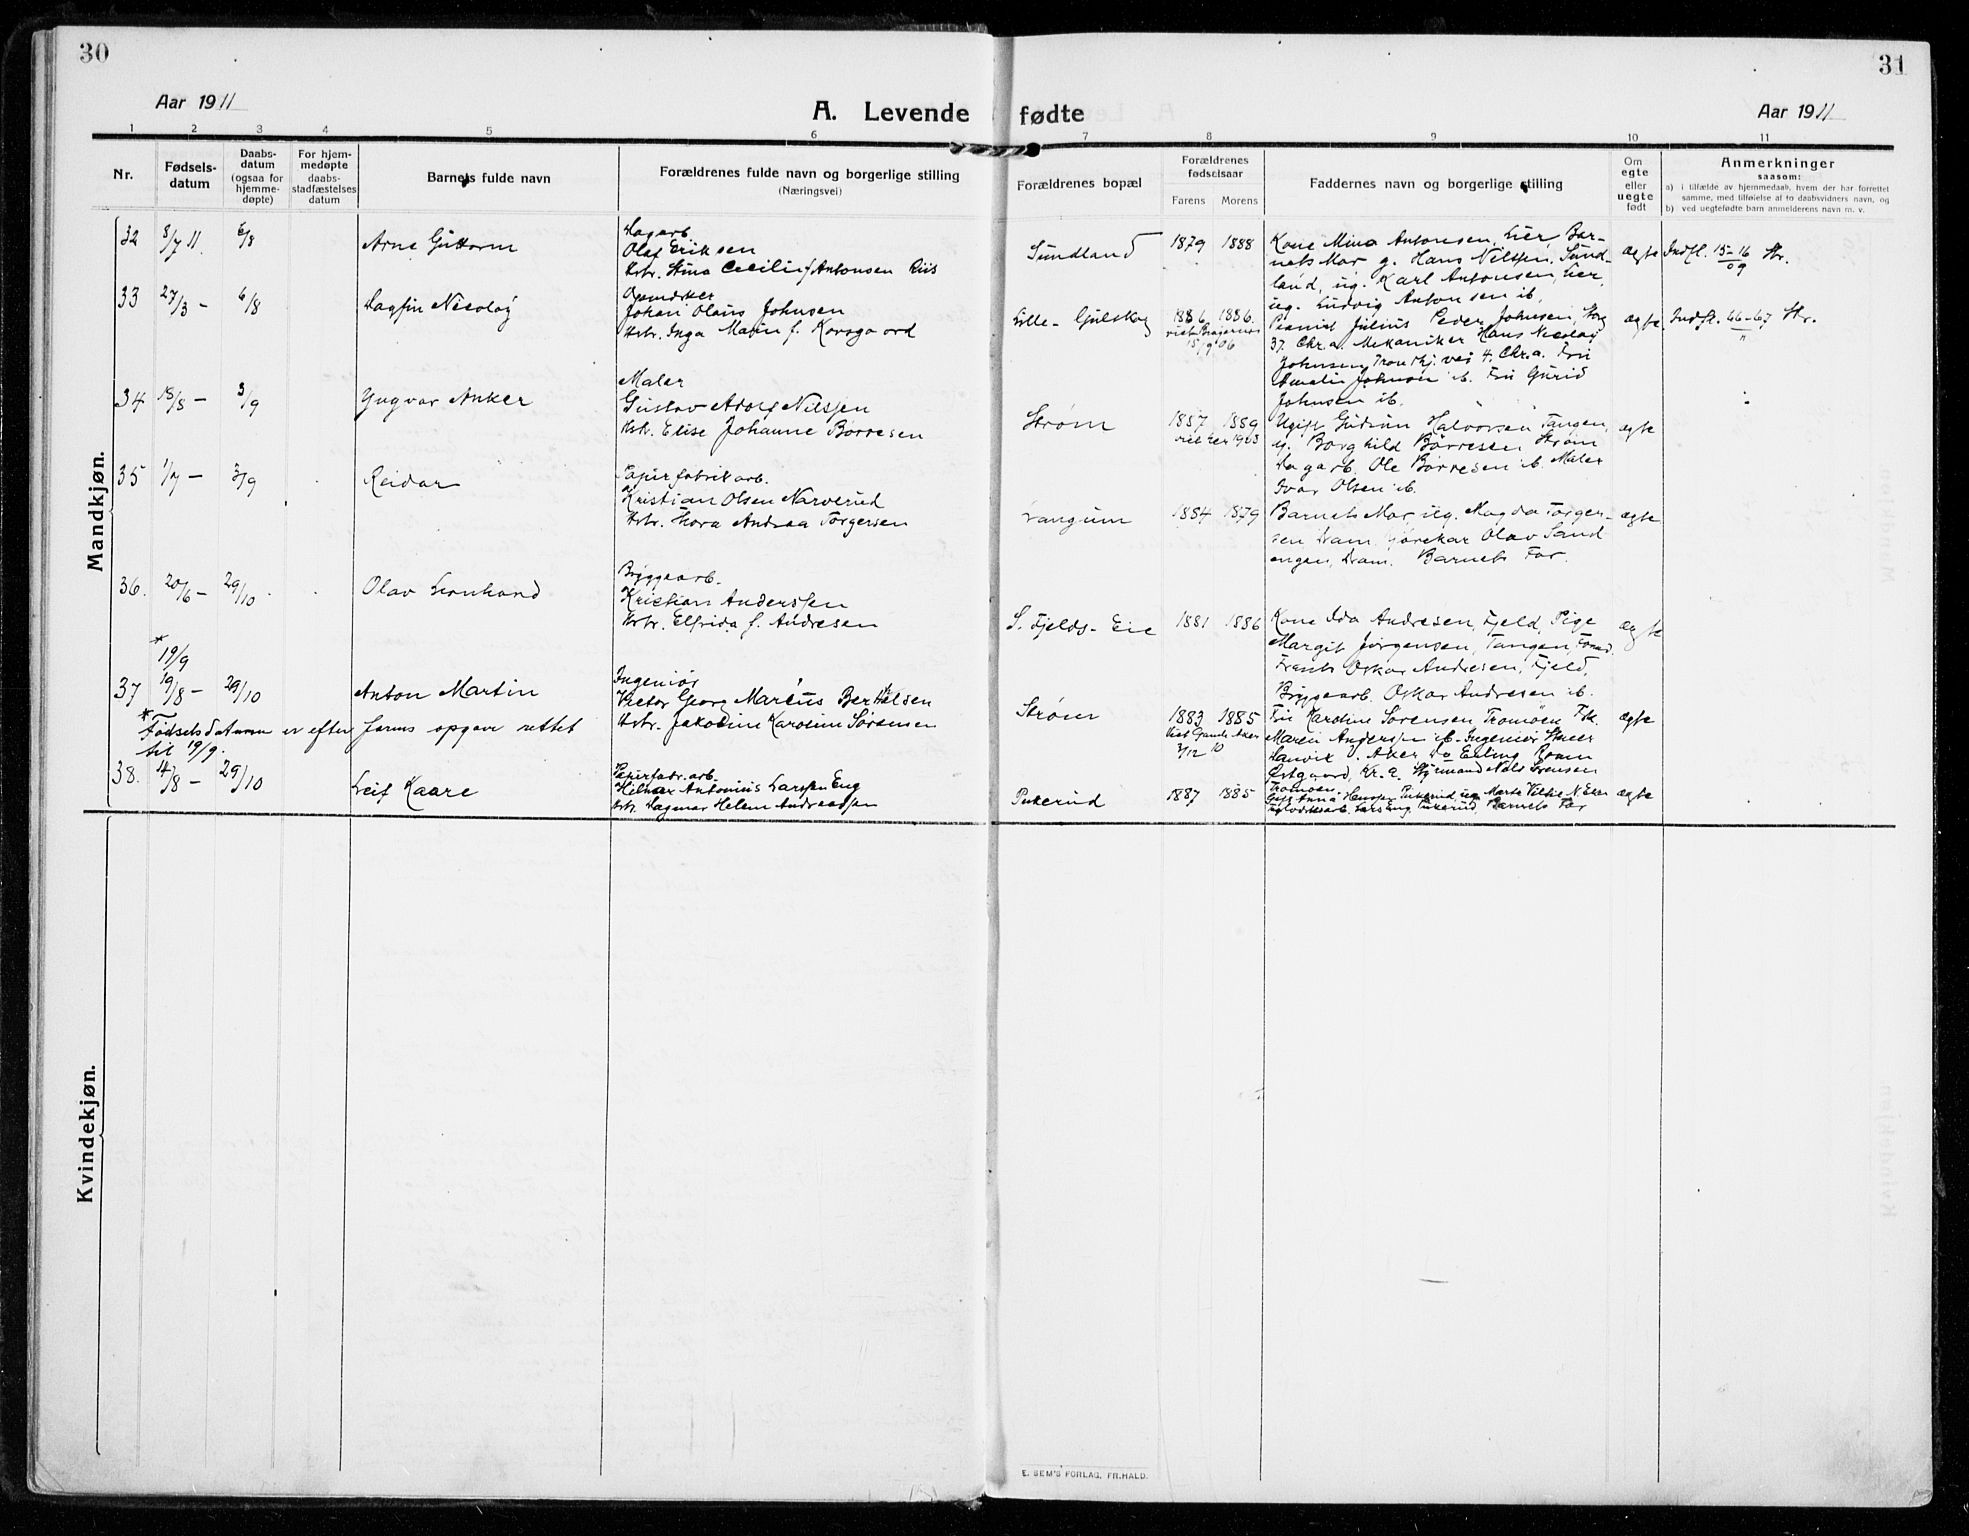 30
31
Aar 1911
A. Levende fødte
Aar 1911
1 2 3 4 5 6 7 8 9 10 11
Nr.
Fødsels-
datum
Daabs-
datum
(ogsaa for
hjemme-
døpte)
For hjem-
medøpte
daabs-
stadfæstelses
datum
Barnets fulde navn
Forældrenes fulde navn og borgerlige stilling
(Næringsvei)
Forældrenes bopæl
Forældrenes
fødselsaar
Farens Morens
Faddernes navn og borgerlige stilling
Om
egte
eller
uegte
født
Anmerkninger
saasom:
a) i tilfælde av hjemmedaab, hvem der har forrettet
samme, med tilføielse af to daabsvidners navn, og
b) ved uegtefødte barn anmelderens navn m. v.
Mandkjøn.
32 8/7 11. 6/8 Arne Guttorm
Dagarb.
Olaf Eriksen
Hstr. Stina Cecilie f. Antonsen Riis
Sundland 1879 1888
Kone Mina Antonsen, Lier, Bar-
nets Mor, g. Hans Nilssen, Sund-
land, ug. Karl Antonsen, Lier,
ug. Ludvig Antonsen ib.
ægte Indfl. 15-16/09 Str.
33 27/3 - 6/8 Dagfin Nicolay
Johan Olaus Johnsen
Hstr. Inga Marin f. Korsgaard
Lille-Gulskog 1886 1886.
viet Bragernes
15/9 06
Pianist Julius Peder Johnsen,
37. Chr.a. Mekaniker Hans Nicolay
Johnsen, Trondhj. vei 4. Chr.a. Fru
Amalie Johnsen ib. Fru Gurid
Johnsen ib.
ægte Indfl. 66-67 Str.
34 18/8 - 3/9 Yngvar Anker
Maler
Gustav Adolf Nilssen
Hstr. Elise Johanne Børresen
Strøm 1887 1889
viet her 1903
Ugift Gudrun Halvorsen Tangen,
ug. Borghild Børresen Strøm
Dagarb. Ole Børresen ib. Maler
Ivar Olsen ib.
ægte
35 1/7 - 3/9 Reidar
Papirfabrikarb.
Kristian Olsen Narverud
Hstr. Thora Andrea Torgersen
Langum 1884 1879
Barnets Mor, ug. Magda Torger-
sen Dram. Olav Sand
engen, Dram. Barnets Far.
ægte
36. 20/6 - 29/10 Olav Leonhard
Bryggearb.
Kristian Anderssen
Hstr. Elfrida f. Andresen
S. Fjelds-Eie 1881 1886
Kone Ida Andresen, Fjeld, Pige
Margit Jørgensen, Tangen,
Oskar Andresen, Fjeld,
Bryggearb. Oskar Andresen ib.
ægte
* 19/9
37 19/8 - 29/10 Anton Martin
Ingeniør
Victor Georg Marcus Berthelsen
Hstr. Jakobine Karoline Sørensen
Strøm 1883 1885
Viet Grande Aker
3/12 10
Fru Karoline Sørensen Tromøen, Frk.
Maren Anderssen ib. Ingeniør
V. Aker, Do Erling Roman
Østgaard, Kr.a. Styrmand Nils Sørensen
Tromøen.
ægte
* Fødselsdatum er efter Farens opgave rettet
til 19/9.
38. 14/8 - 29/10 Leif Kaare
Papirfabr.arb.
Hilmar Antonius Larssen Eng
Hstr. Dagmar Helene Andreassen
Pukerud 1887 1885
Gift Anna Hanssen Pukerud, ug. Marta
Lars Eng, Pukerud, Barnets Far
ægte
Kvindekjøn.
E. SEM'S FORLAG, FR.HALD.